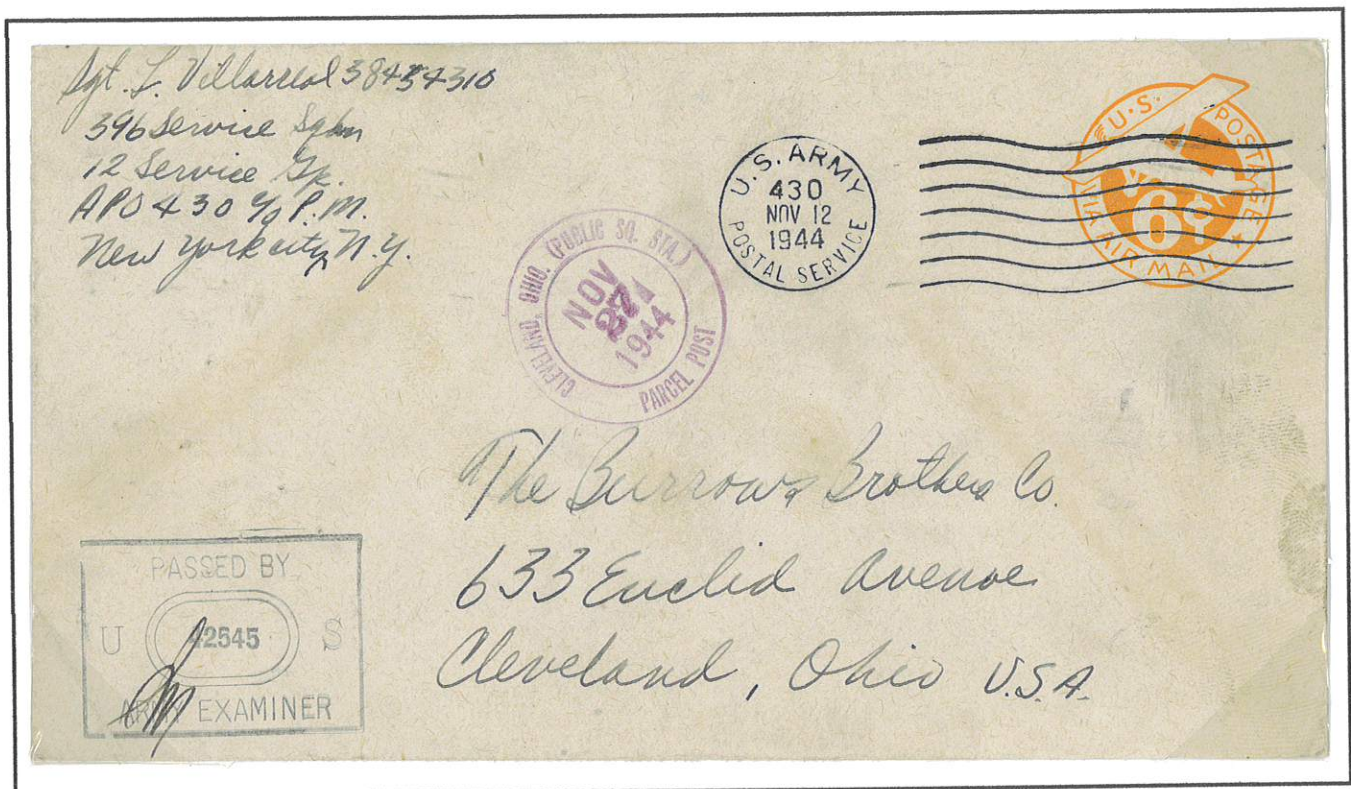 Sgt. L. Villarreal 38454310
396 Service Sqdn
12 Service Gp.
APO 430 c/o P.M.
New York city, N.Y.
U.S. ARMY
430
NOV 12
1944
POSTAL SERVICE
U.S. POSTAGE
6¢
VIA AIR MAIL
CLEVELAND, OHIO. (PUBLIC SQ. STA.)
NOV
1944
PARCEL POST
The Burrows Brothers Co.
633 Euclid Avenue
Cleveland, Ohio U.S.A.
PASSED BY
U 42545 S
ARMY EXAMINER